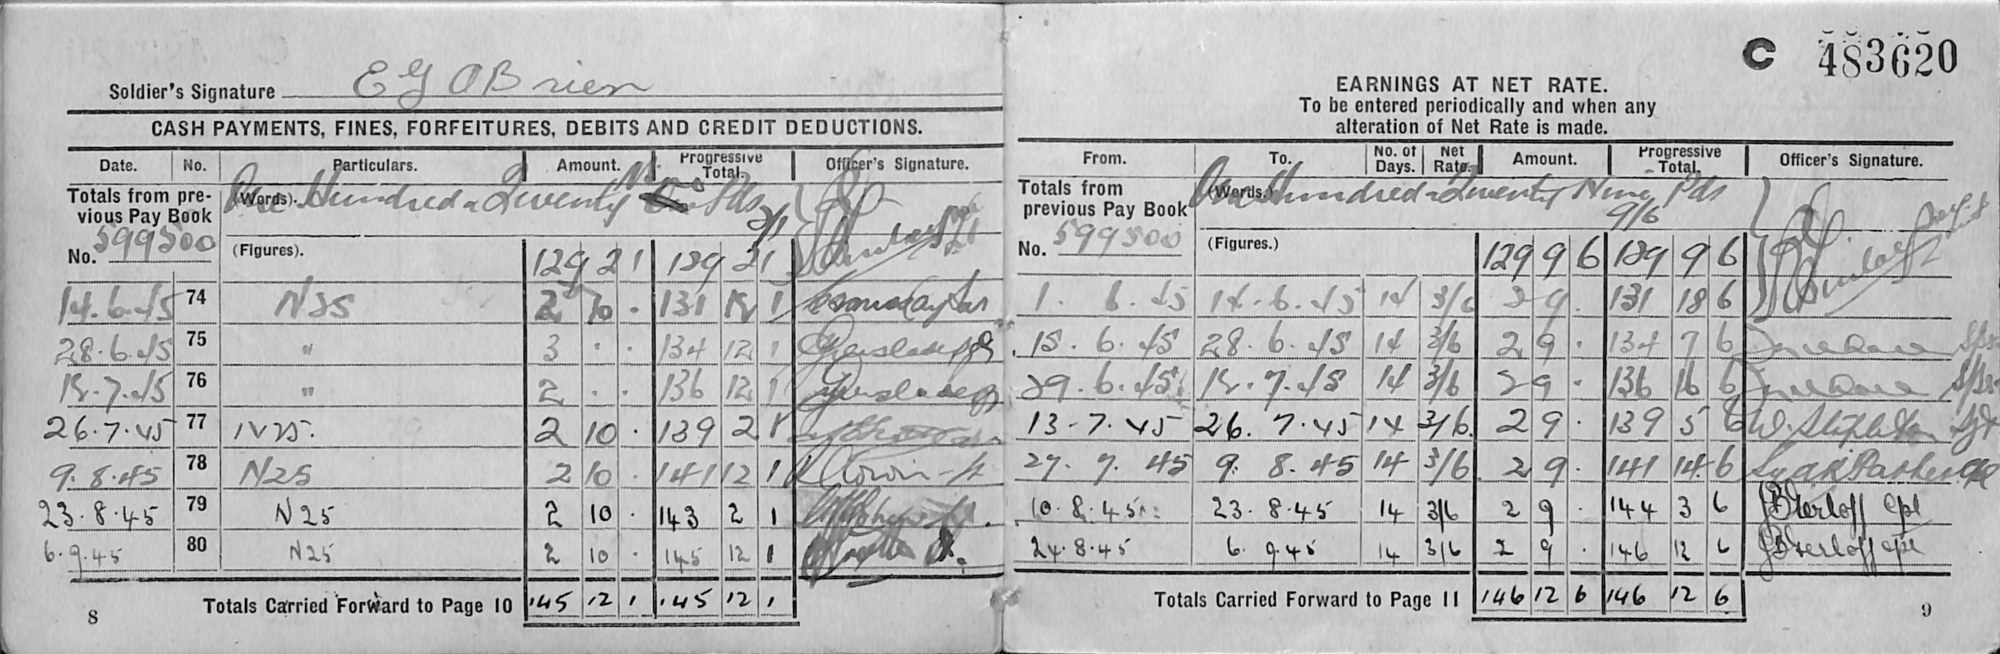 Soldier's Signature E G O'Brien
CASH PAYMENTS, FINES, FORFEITURES, DEBITS AND CREDIT DEDUCTIONS.
Date. No. Particulars. Amount. Progressive Total. Officer's Signature.
Totals from previous Pay Book (Words). One Hundred & Twenty Nine Pds 2/1
No. 599500 (Figures). 129 2 1 129 2 1
14.6.45 74 N25 2 10 . 131 12 1
28.6.45 75 " 3 . . 134 12 1
12.7.45 76 " 2 . . 136 12 1
26.7.45 77 N25. 2 10 . 139 2 1
9.8.45 78 N25 2 10 . 141 12 1
23.8.45 79 N25 2 10 . 143 2 1
6.9.45 80 N25 2 10 . 145 12 1
Totals Carried Forward to Page 10 145 12 1 145 12 1
8
C 483620
EARNINGS AT NET RATE.
To be entered periodically and when any
alteration of Net Rate is made.
From. To. No. of Days. Net Rate. Amount. Progressive Total. Officer's Signature.
Totals from previous Pay Book (Words.) One Hundred & Twenty Nine Pds 9/6
No. 599500 (Figures.) 129 9 6 129 9 6
1.6.45 14.6.45 14 3/6 2 9 . 131 18 6
15.6.45 28.6.45 14 3/6 2 9 . 134 7 6
29.6.45 12.7.45 14 3/6 2 9 . 136 16 6
13.7.45 26.7.45 14 3/6 2 9 . 139 5 6 W. Sgt
27.7.45 9.8.45 14 3/6 2 9 . 141 14 6 Parker Cpl
10.8.45 23.8.45 14 3/6 2 9 . 144 3 6 Cpl
24.8.45 6.9.45 14 3/6 2 9 . 146 12 6 Cpl
Totals Carried Forward to Page 11 146 12 6 146 12 6
9